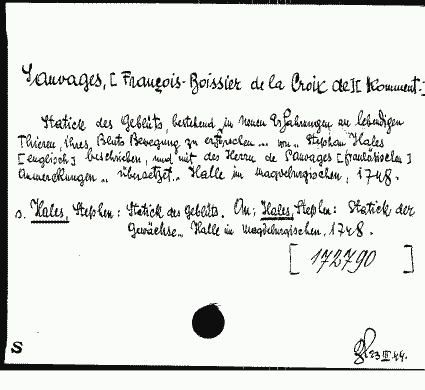 Sauvages, [François-Boissier de la Croix de] [Komment.]
Statick des Geblüts, bestehend in neuen Erfahrungen an lebendigen
Thieren, ihres Bluts Bewegung zu erforschen... von.. Stephan Hales
[englisch] beschrieben, und mit des Herrn de Sauvages [französischen]
Anmerckungen.. übersetzet.. Halle im magdeburgischen, 1748.
s. Hales, Stephen: Statick des Geblüts. An: Hales, Stephen: Statick der
Gewächse.. Halle im Magdeburgischen, 1748.
[172790]
S
23 III 44.